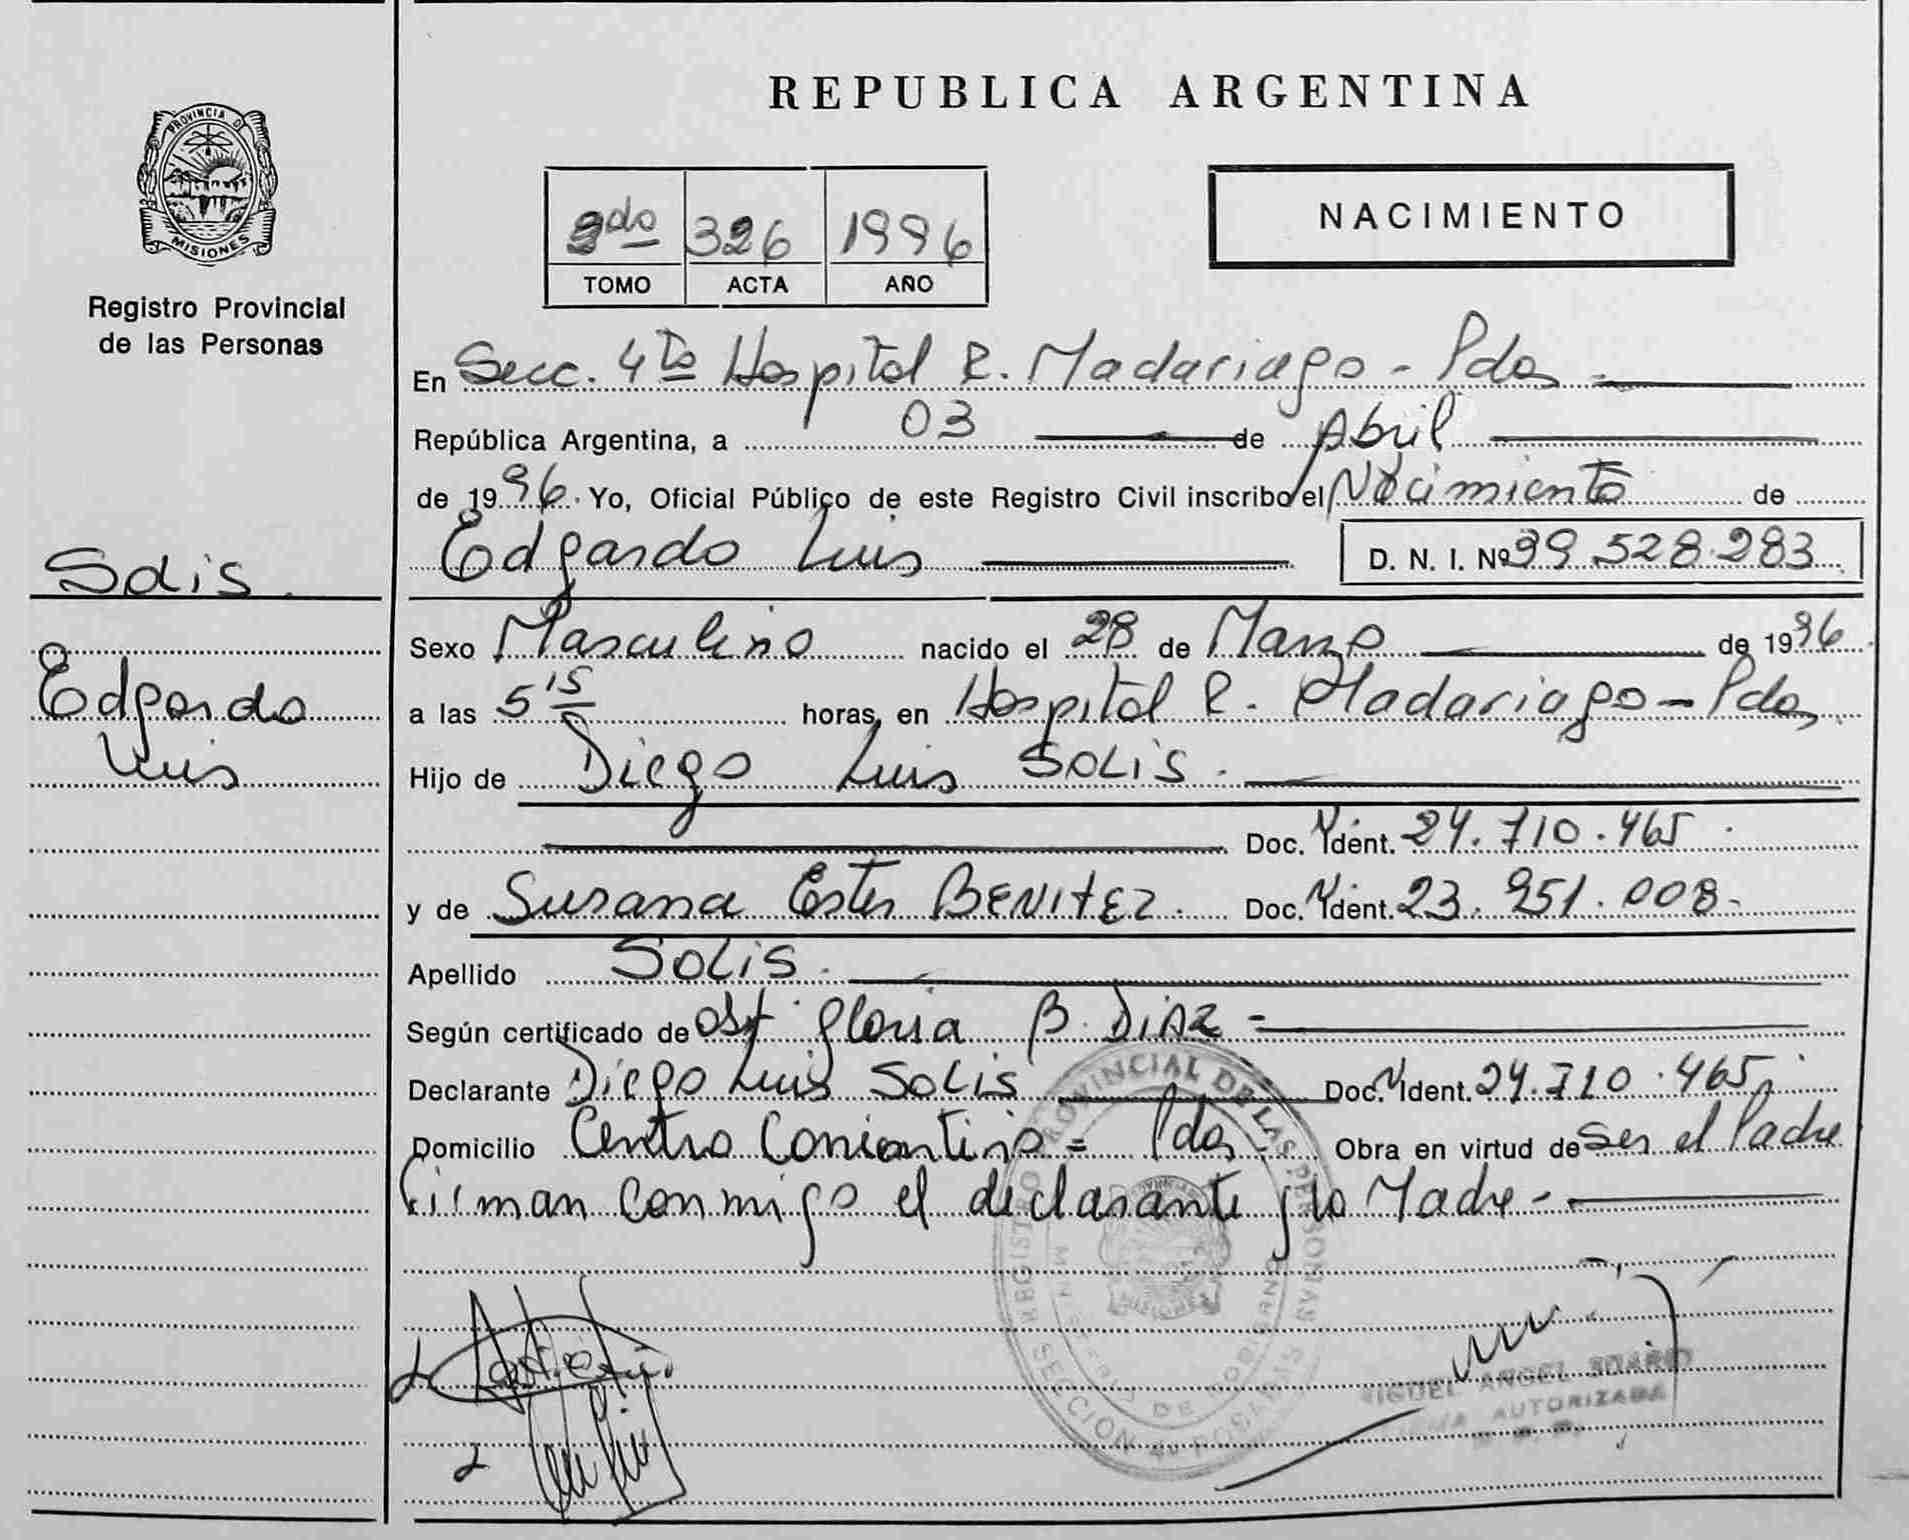 REPUBLICA ARGENTINA
PROVINCIA DE
MISIONES
Registro Provincial
de las Personas
2do 326 1996
TOMO ACTA AÑO
NACIMIENTO
En Secc. 4ta Hospital R. Madariaga - Pdas
República Argentina, a 03 de Abril
de 1996. Yo, Oficial Público de este Registro Civil inscribo el Nacimiento de
Edgardo Luis D. N. I. Nº 39.528.283
Solis
Edgardo
Luis
Sexo Masculino nacido el 28 de Marzo de 1996
a las 5 15 horas, en Hospital R. Madariaga - Pdas
Hijo de Diego Luis SOLIS.
Doc. Ident. 24.710.465
y de Susana Ester BENITEZ. Doc. Ident. 23.951.008-
Apellido SOLIS.
Según certificado de Obst Gloria B. DIAZ -
Declarante Diego Luis SOLIS Doc. Ident. 24.710.465
Domicilio Centro Correntino = Pdas Obra en virtud de Ser el Padre
Firman conmigo el declarante y la Madre -
REGISTRO PROVINCIAL DE LAS PERSONAS
SECCION 4ta POSADAS
MIGUEL ANGEL SUAREZ
AUTORIZADA